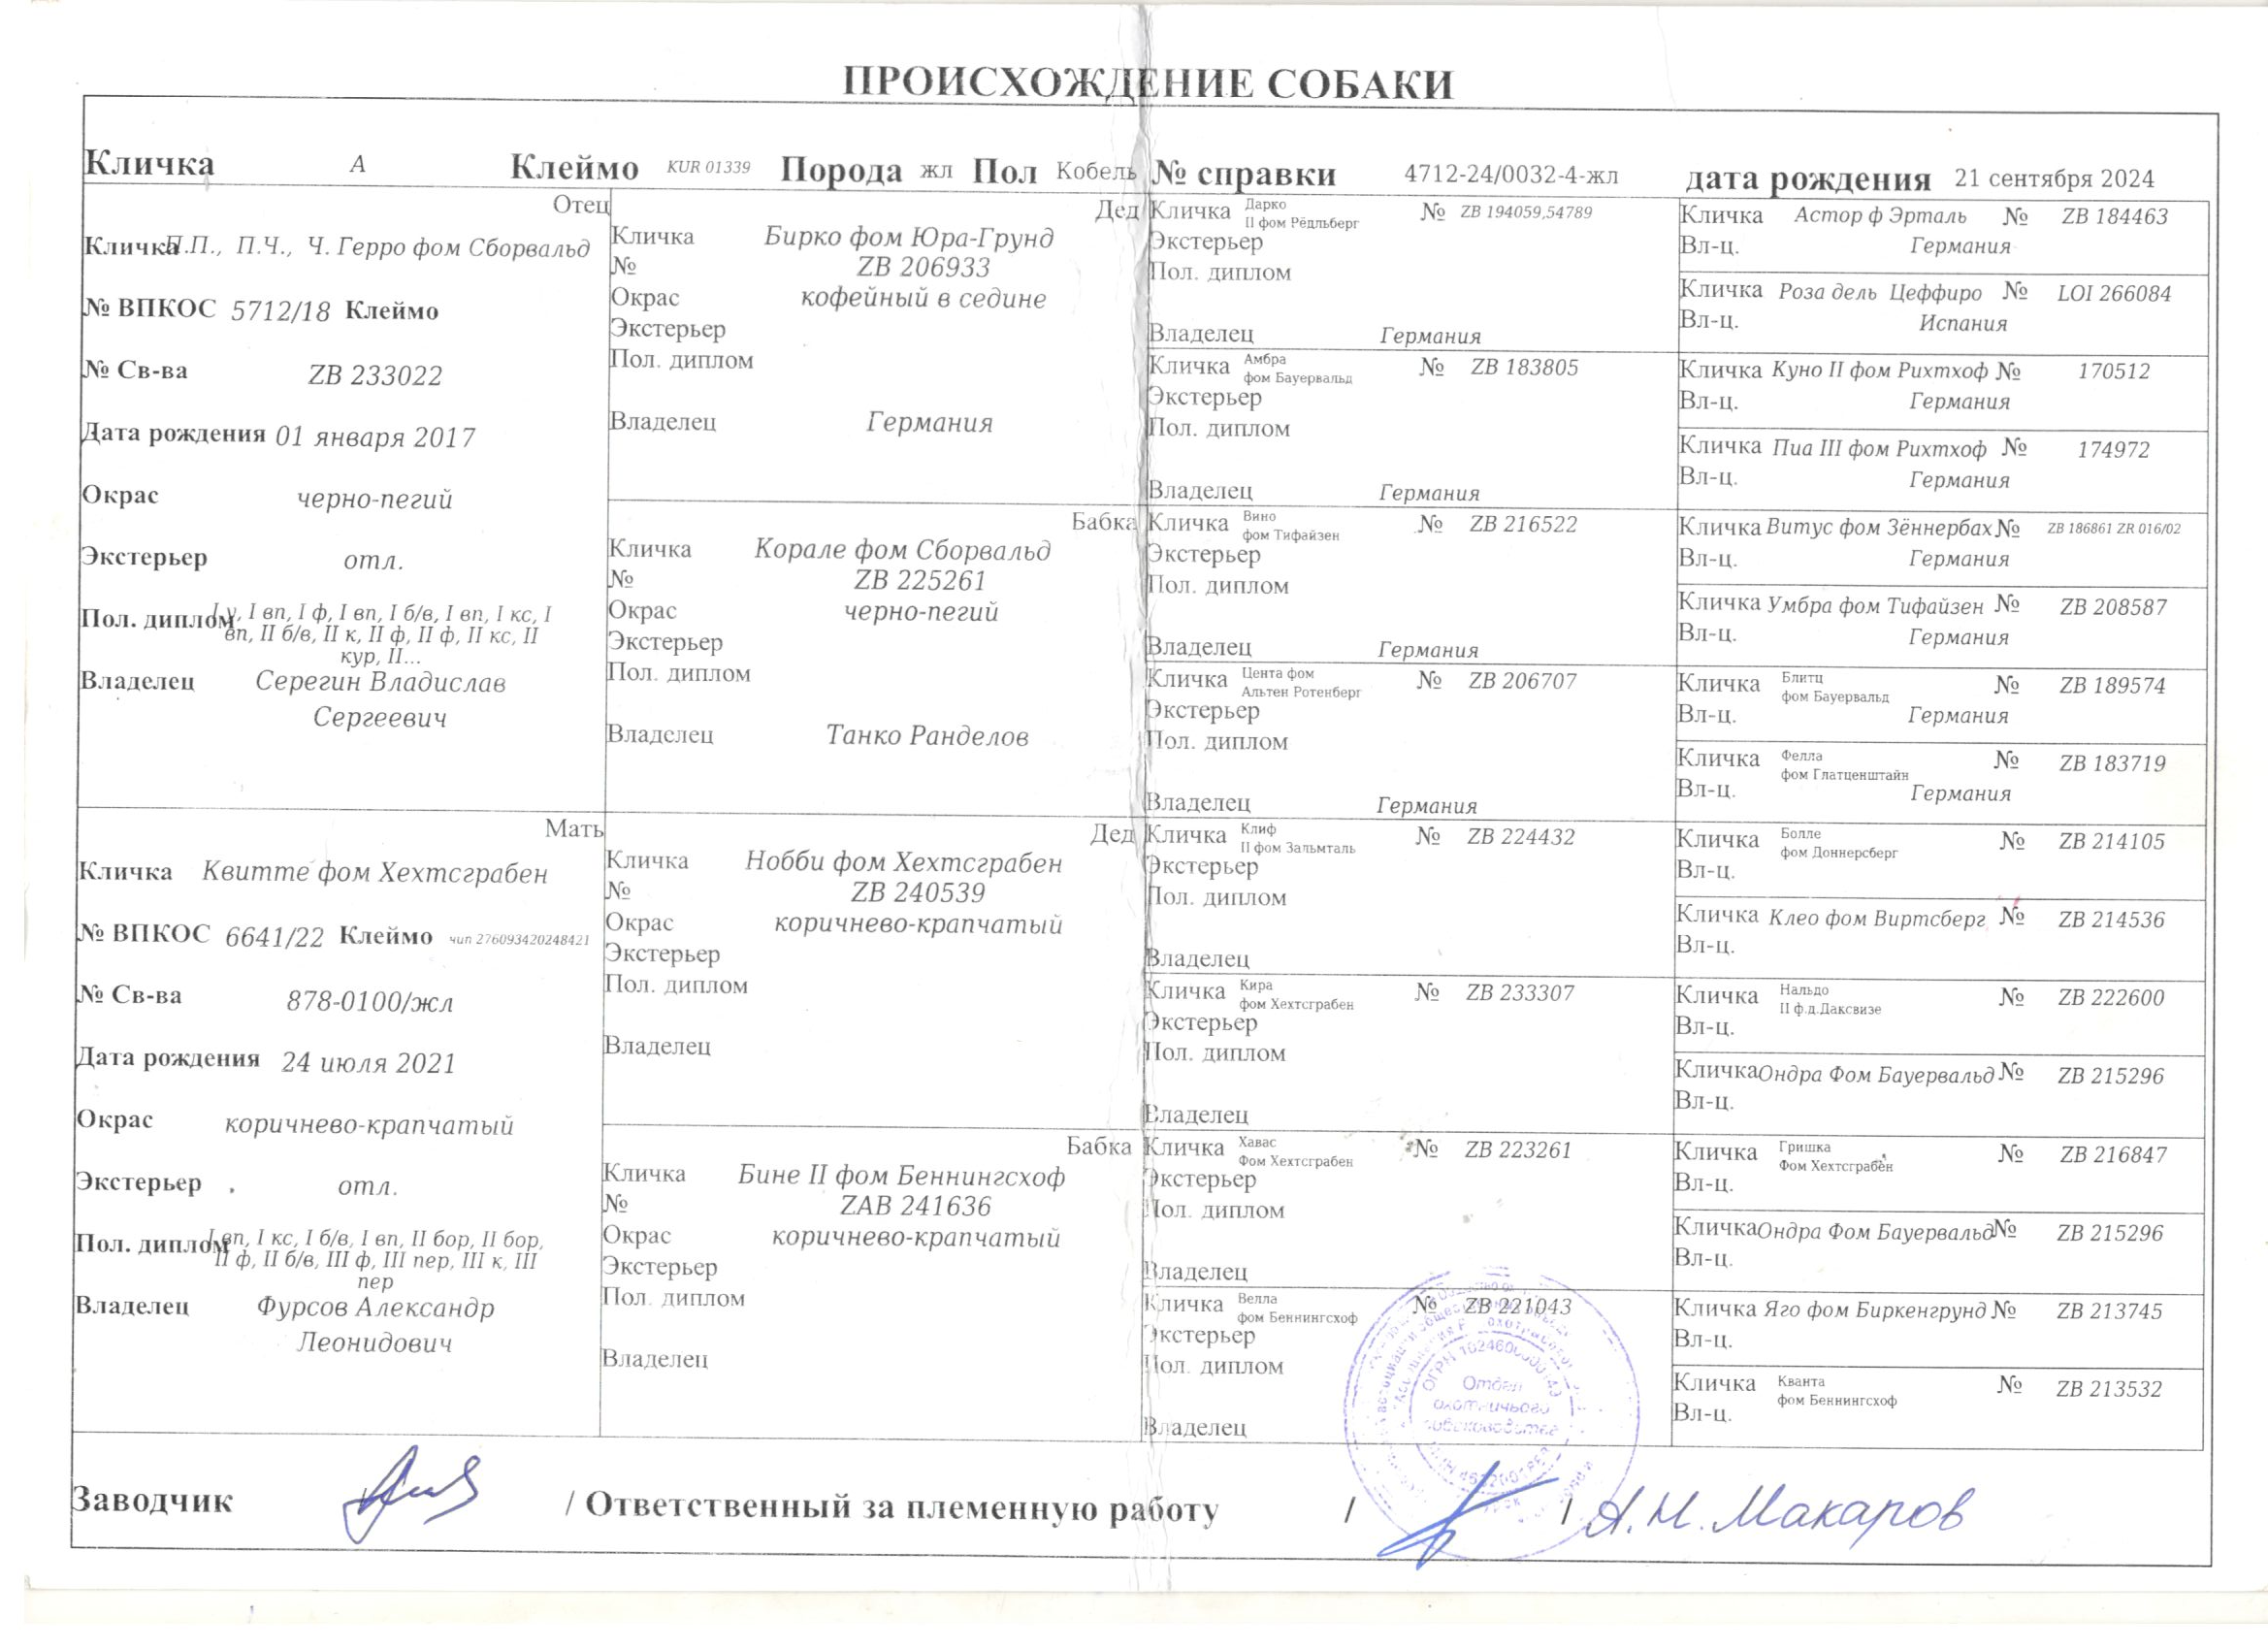 ПРОИСХОЖДЕНИЕ СОБАКИ
Кличка А Клеймо KUR 01339 Порода жл Пол Кобель № справки 4712-24/0032-4-жл дата рождения 21 сентября 2024
Отец
Кличка П.П., П.Ч., Ч. Герро фом Сборвальд
№ ВПКОС 5712/18 Клеймо
№ Св-ва ZB 233022
Дата рождения 01 января 2017
Окрас черно-пегий
Экстерьер отл.
Пол. диплом I у, I вп, I ф, I вп, I б/в, I вп, I кс, I
вп, II б/в, II к, II ф, II ф, II кс, II
кур, II...
Владелец Серегин Владислав
Сергеевич
Мать
Кличка Квитте фом Хехтсграбен
№ ВПКОС 6641/22 Клеймо чип 276093420248421
№ Св-ва 878-0100/жл
Дата рождения 24 июля 2021
Окрас коричнево-крапчатый
Экстерьер отл.
Пол. диплом I вп, I кс, I б/в, I вп, II бор, II бор,
II ф, II б/в, III ф, III пер, III к, III
пер
Владелец Фурсов Александр
Леонидович
Дед
Кличка Бирко фом Юра-Грунд
№ ZB 206933
Окрас кофейный в седине
Экстерьер
Пол. диплом
Владелец Германия
Бабка
Кличка Корале фом Сборвальд
№ ZB 225261
Окрас черно-пегий
Экстерьер
Пол. диплом
Владелец Танко Ранделов
Дед
Кличка Нобби фом Хехтсграбен
№ ZB 240539
Окрас коричнево-крапчатый
Экстерьер
Пол. диплом
Владелец
Бабка
Кличка Бине II фом Беннингсхоф
№ ZAB 241636
Окрас коричнево-крапчатый
Экстерьер
Пол. диплом
Владелец
Кличка Дарко
II фом Рёдльберг № ZB 194059,54789
Экстерьер
Пол. диплом
Владелец Германия
Кличка Амбра
фом Бауервальд № ZB 183805
Экстерьер
Пол. диплом
Владелец Германия
Кличка Вино
фом Тифайзен № ZB 216522
Экстерьер
Пол. диплом
Владелец Германия
Кличка Цента фом
Альтен Ротенберг № ZB 206707
Экстерьер
Пол. диплом
Владелец Германия
Кличка Клиф
II фом Зальмталь № ZB 224432
Экстерьер
Пол. диплом
Владелец
Кличка Кира
фом Хехтсграбен № ZB 233307
Экстерьер
Пол. диплом
Владелец
Кличка Хавас
Фом Хехтсграбен № ZB 223261
Экстерьер
Пол. диплом
Владелец
Кличка Велла
фом Беннингсхоф № ZB 221043
Экстерьер
Пол. диплом
Владелец
Кличка Астор ф Эрталь № ZB 184463
Вл-ц. Германия
Кличка Роза дель Цеффиро № LOI 266084
Вл-ц. Испания
Кличка Куно II фом Рихтхоф № 170512
Вл-ц. Германия
Кличка Пиа III фом Рихтхоф № 174972
Вл-ц. Германия
Кличка Витус фом Зённербах № ZB 186861 ZR 016/02
Вл-ц. Германия
Кличка Умбра фом Тифайзен № ZB 208587
Вл-ц. Германия
Кличка Блитц
фом Бауервальд № ZB 189574
Вл-ц. Германия
Кличка Фелла
фом Глатценштайн № ZB 183719
Вл-ц. Германия
Кличка Болле
фом Доннерсберг № ZB 214105
Вл-ц.
Кличка Клео фом Виртсберг № ZB 214536
Вл-ц.
Кличка Нальдо
II ф.д.Даксвизе № ZB 222600
Вл-ц.
Кличка Ондра Фом Бауервальд № ZB 215296
Вл-ц.
Кличка Гришка
Фом Хехтсграбен № ZB 216847
Вл-ц.
Кличка Ондра Фом Бауервальд № ZB 215296
Вл-ц.
Кличка Яго фом Биркенгрунд № ZB 213745
Вл-ц.
Кличка Кванта
фом Беннингсхоф № ZB 213532
Вл-ц.
Отдел
охотничьего
собаководства
Заводчик / Ответственный за племенную работу / / А.Н. Макаров